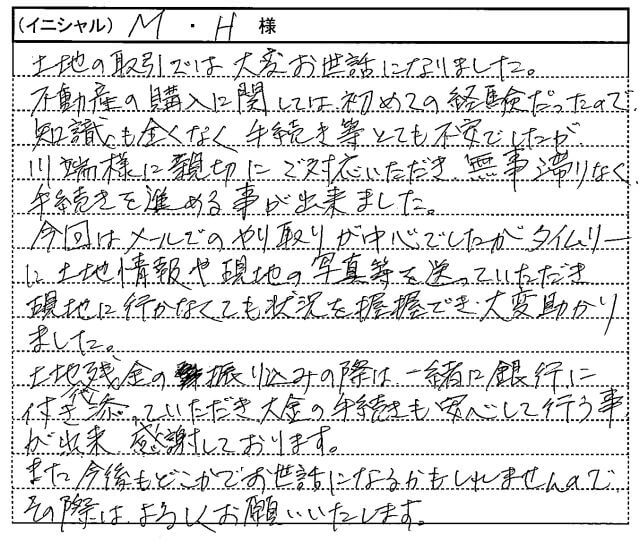 (イニシャル) M ・ H 様
土地の取引では大変お世話になりました。
不動産の購入に関しては初めての経験だったので
知識も全くなく手続き等とても不安でしたが
川端様に親切にご対応いただき無事滞りなく、
手続きを進める事が出来ました。
今回はメールでのやり取りが中心でしたがタイムリー
に土地情報や現地の写真等を送っていただき
現地に行かなくても状況を握握でき大変助かり
ました。
土地残金の振り込みの際は一緒に銀行に
付き添っていただき大金の手続きも安心して行う事
が出来感謝しております。
また今後もどこかでお世話になるかもしれませんので
その際はよろしくお願いいたします。